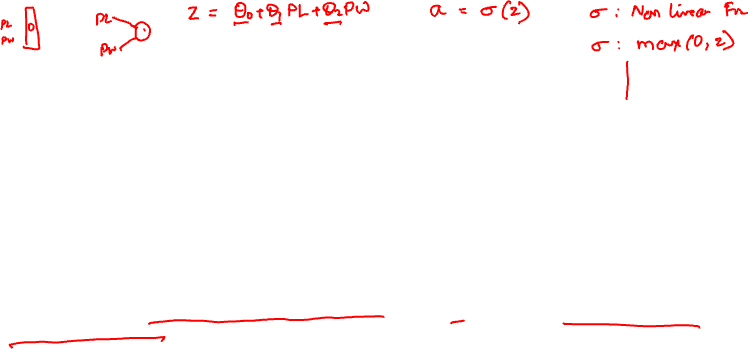 PL
PW
PL
PW
Z = θ₀+θ₁PL+θ₂PW
a = σ(z)
σ : Non linear Fn
σ : max(0, z)